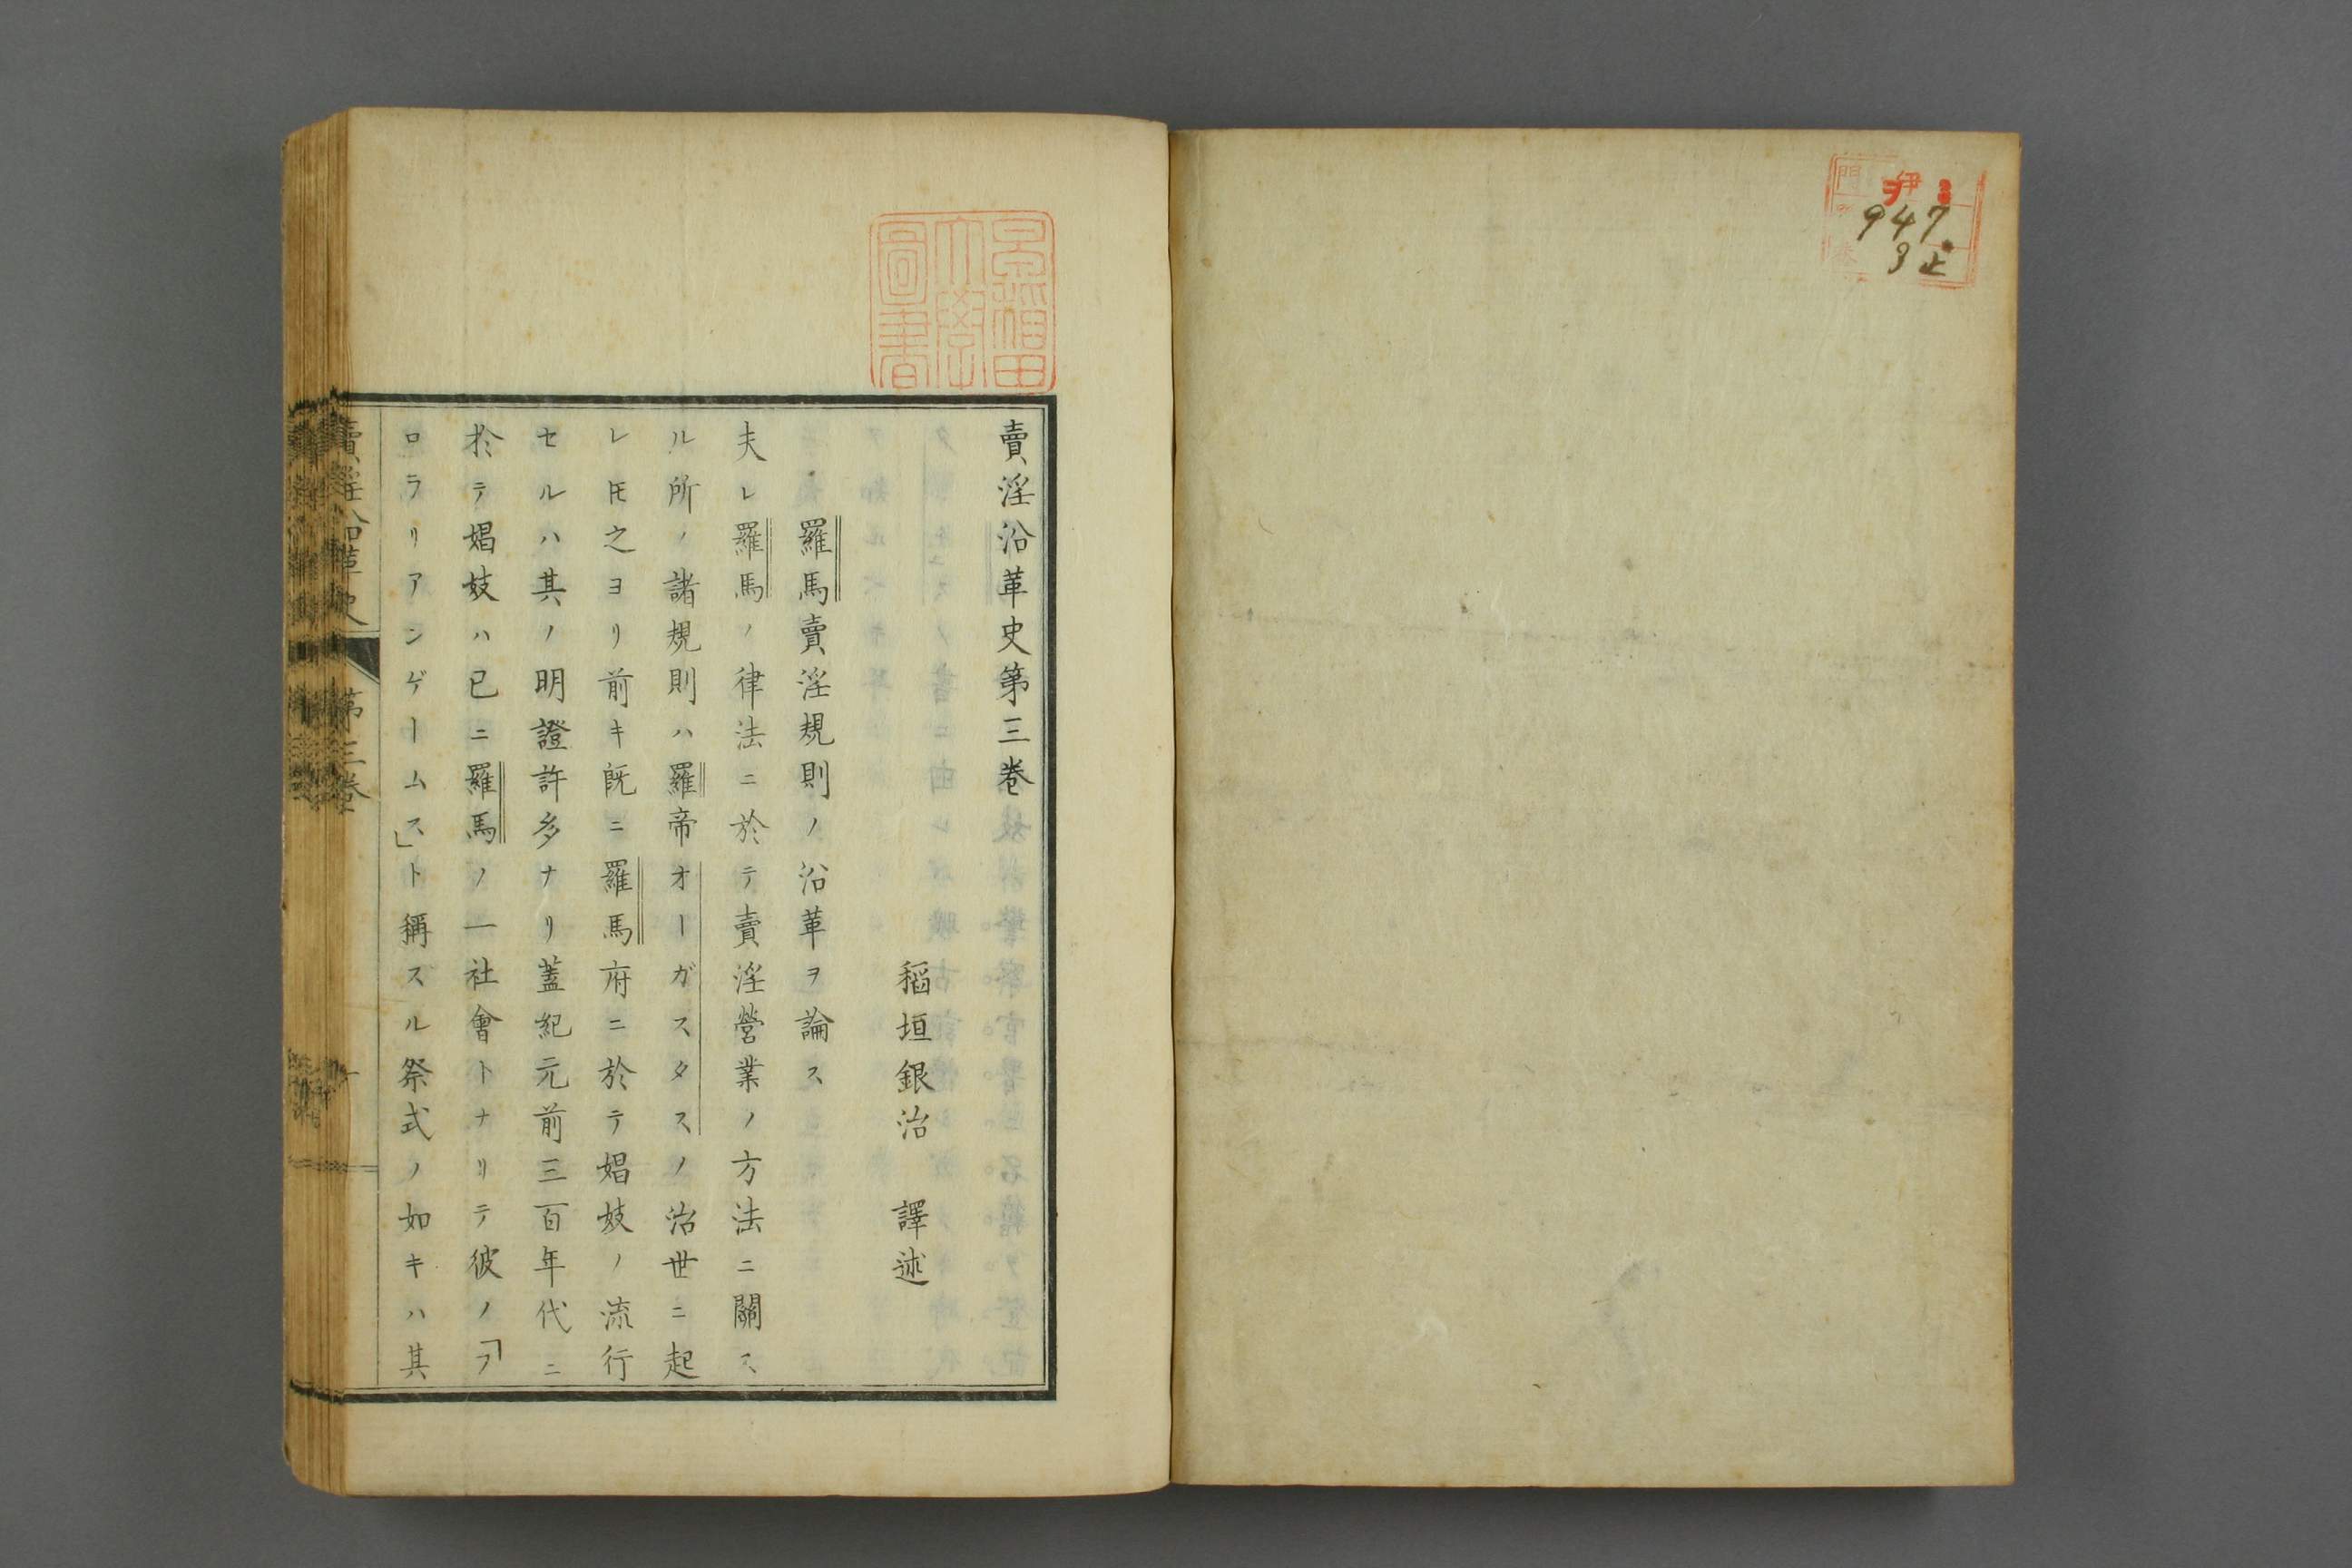 伊
947
3止
早稲田
大學
圖書
賣淫沿革史第三巻
稻垣銀治　譯述
羅馬賣淫規則ノ沿革ヲ論ス
夫レ羅馬ノ律法ニ於テ賣淫營業ノ方法ニ關ス
ル所ノ諸規則ハ羅帝オーガスタスノ治世ニ起
レ𪜈之ヨリ前キ既ニ羅馬府ニ於テ娼妓ノ流行
セルハ其ノ明證許多ナリ蓋紀元前三百年代ニ
於テ娼妓ハ已ニ羅馬ノ一社會トナリテ彼ノ「フ
ロラリアンゲームス」ト稱スル祭式ノ如キハ其
賣淫沿革史　第三巻　一